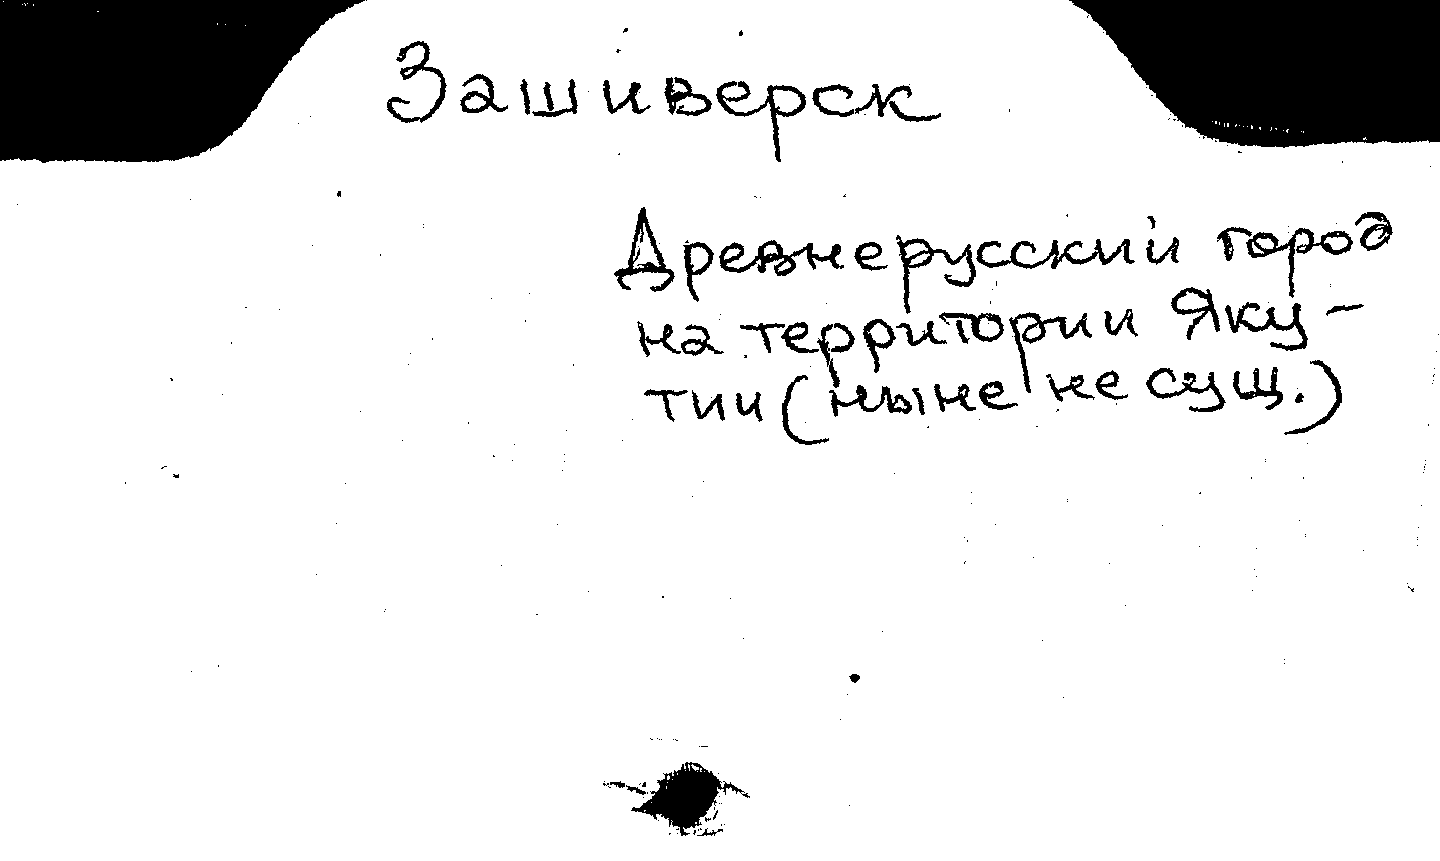 Зашиверск
Древнерусский город
на территории Яку-
тии (ныне не сущ.)